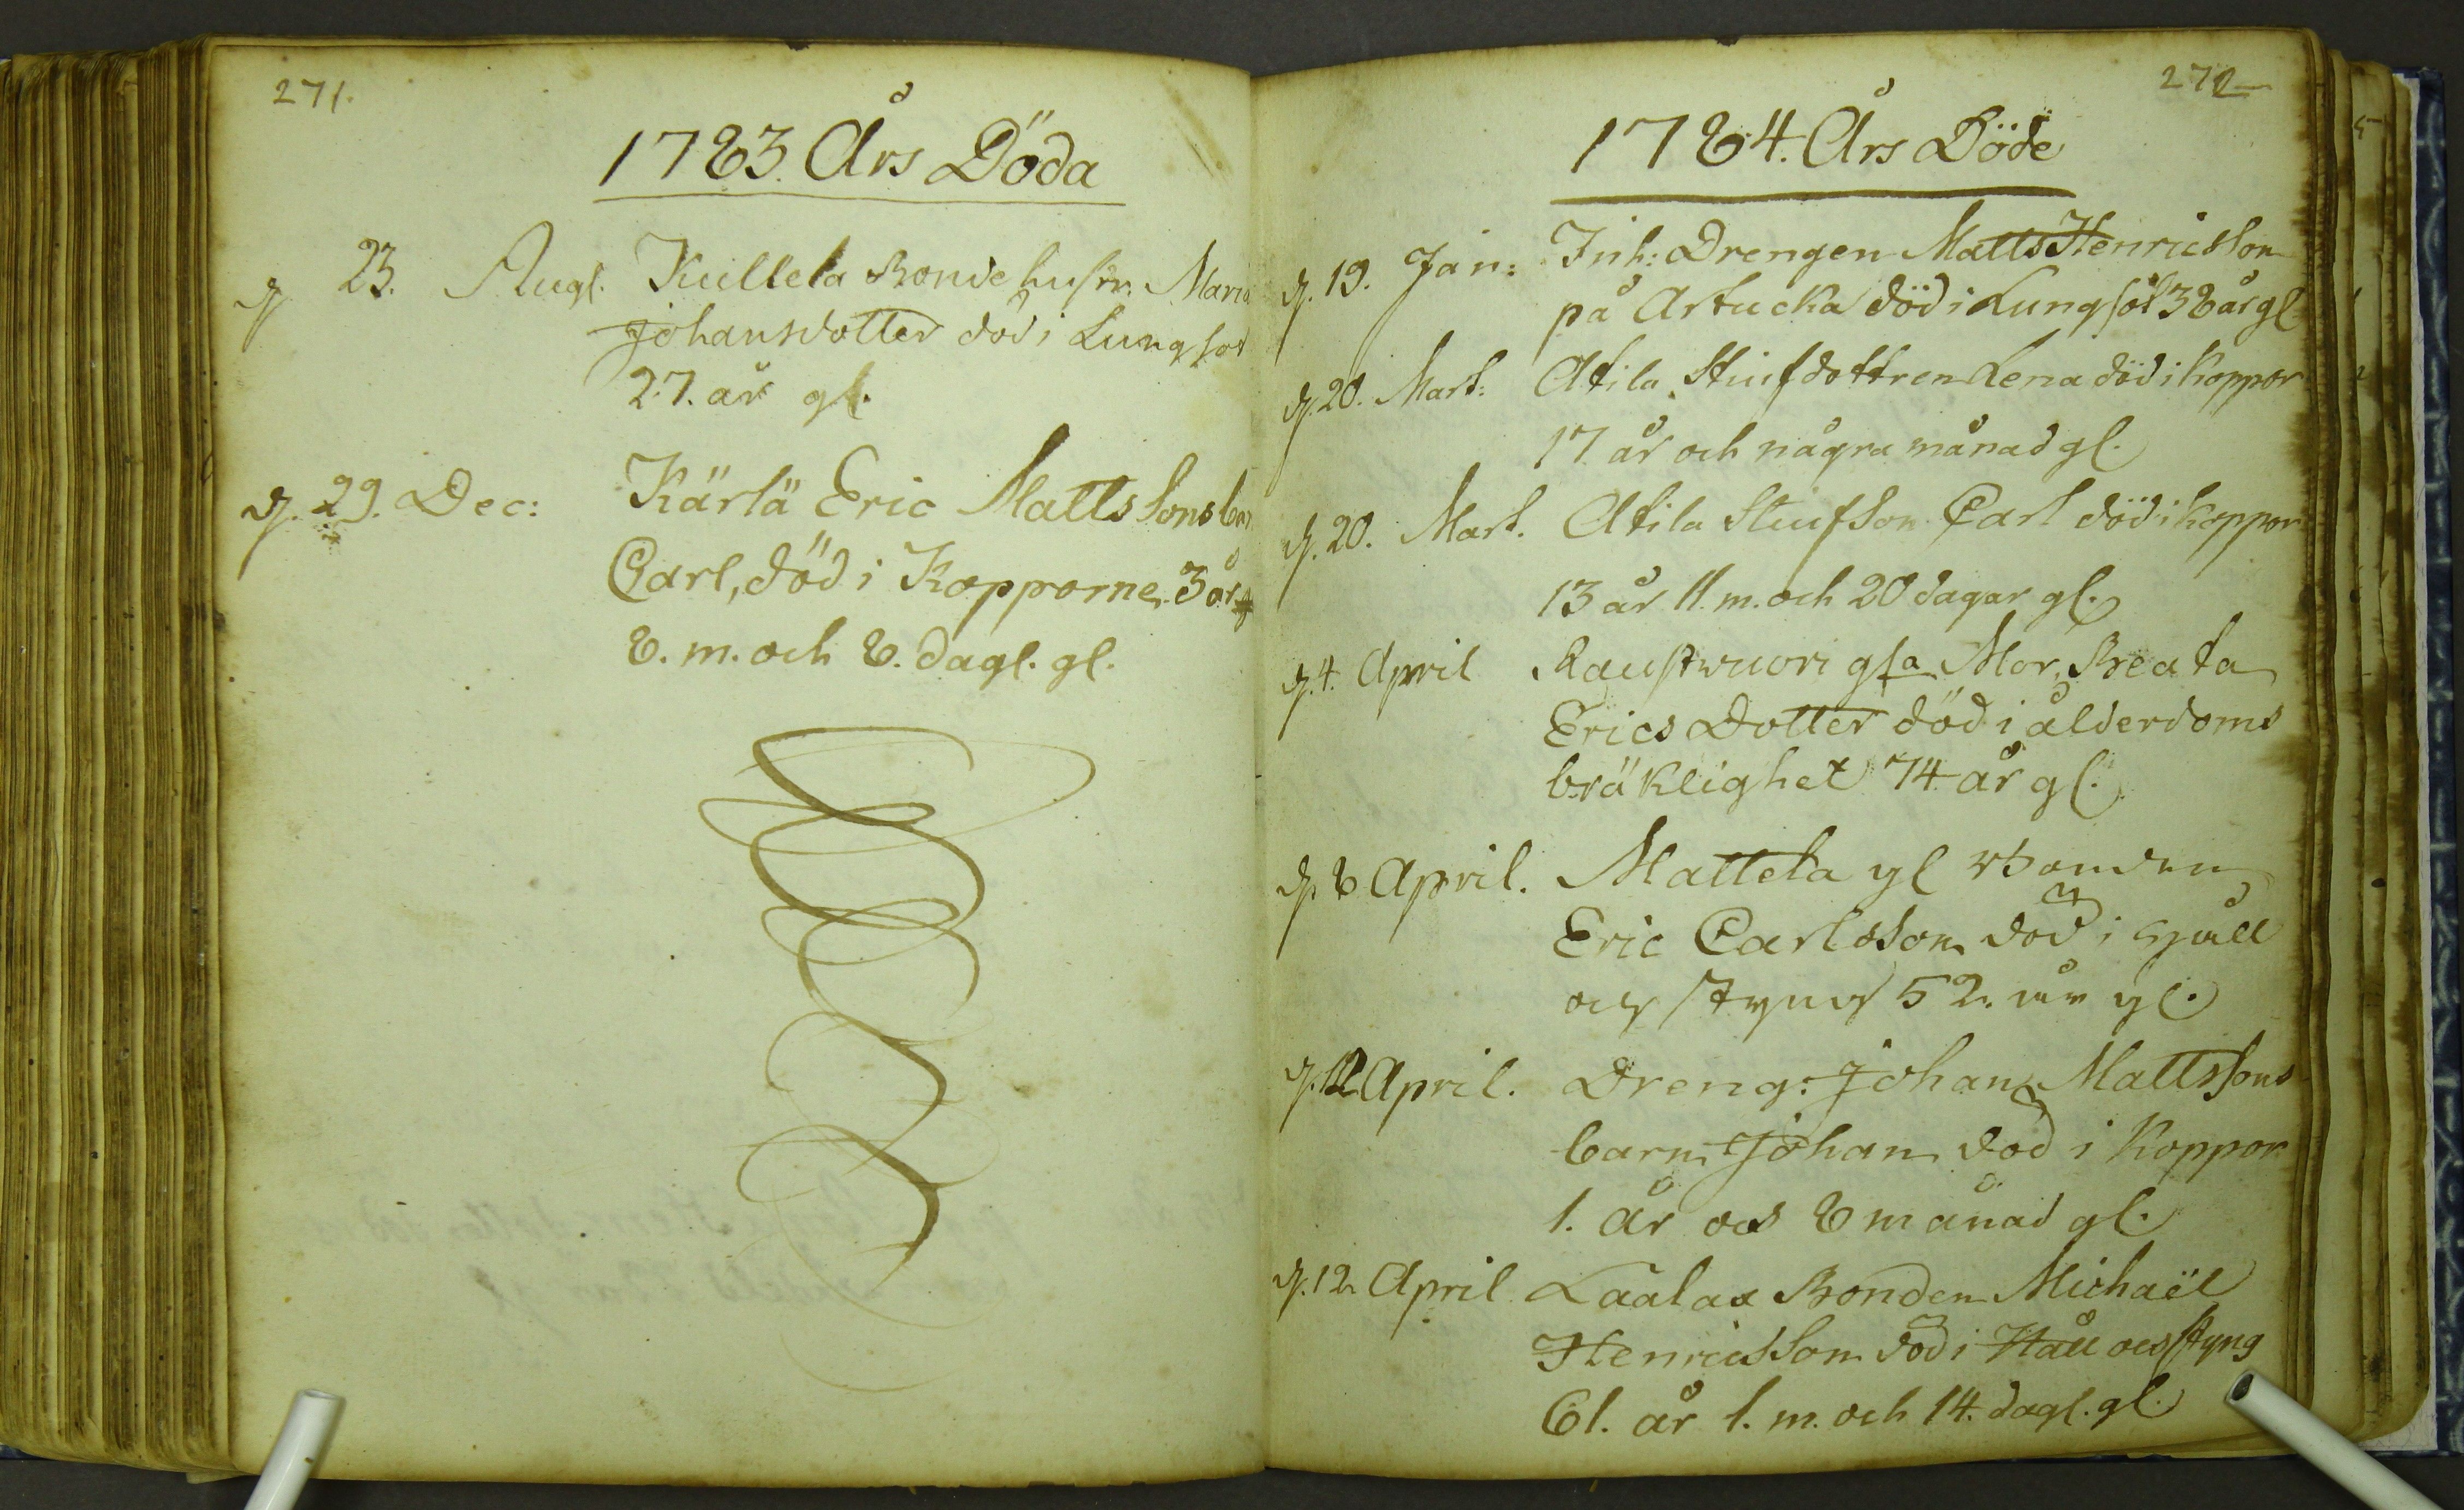 271.
1783. Års Döda
d. 23. Aug. Kullela Bonde hustr. Maria
Johansdotter död i Lungsot
27. år gl.
d. 29. Dec: Kärlä Eric Mattssons barn
Carl, död i Kopporne 3 år
8. m. och 8. dagl. gl.
272
1784. Års Döde
d. 19. Jan: Inh: Drengen Matts Henricsson
på Artucka död i Lungsot 38 år gl.
d. 20. Mart: Atila Stiufdottren Lena död i Koppor
17 år och några månad gl.
d. 20. Mart. Atila Stiufson Carl död i Koppor
13 år 11. m. och 20 dagar gl.
d. 4. April Raustvuori gla Mor, Beata
Erics Dotter död i ålderdoms
bräklighet 74 år gl.
d. 8 April. Mattela gl Bonden
Eric Carlsson död i Håll
och styng 52. år gl.
d. 12 April. Dreng: Johan Mattssons
barn Johan död i Koppor
1. år och 8 månad gl.
d. 12 April Laalax Bonden Michaël
Henricsson död i Håll och styng
61. år 1. m. och 14. dagl. gl.